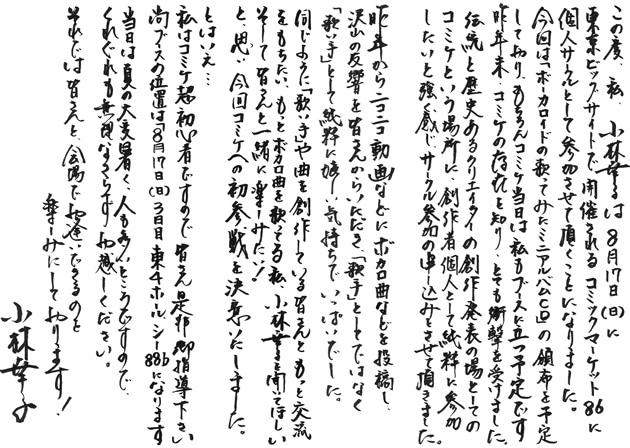 この度、私、小林幸子は8月17日(日)に
東京ビッグサイトで開催されるコミックマーケット86に
個人サークルとして参加させて頂くことになりました。
今回は「ボーカロイドの歌ってみたミニアルバムCD」の頒布を予定
しており、もちろんコミケ当日は私もブースに立つ予定です
昨年末、コミケの存在を知り、とても衝撃を受けました。
伝統と歴史あるクリエイターの創作発表の場としての
コミケという場所に、創作者個人として純粋に参加
したいと強く感じサークル参加の申し込みをさせて頂きました。
昨年からニコニコ動画などにボカロ曲などを投稿し、
沢山の反響を皆さんからいただき、「歌手」としてではなく
「歌い手」として純粋に嬉しい気持ちでいっぱいでした。
同じように「歌い手」や曲を創作している皆さんともっと交流
をもちたい、もっとボカロ曲を歌ってる私、小林幸子を聞いてほしい
そして皆さんと一緒に楽しみたい!
と、思い、今回コミケへの初参戦を決意いたしました。
とはいえ…
私はコミケ超初心者ですので皆さん是非御指導下さい
尚ブースの位置は「8月17日(日)3日目東4ホールシ-88b」になります
当日は真夏の大変暑く、人も多いところですので、
くれぐれも無理なさらずお越しください。
それでは皆さんと、会場でお逢いできるのを
楽しみにしております!
小林幸子